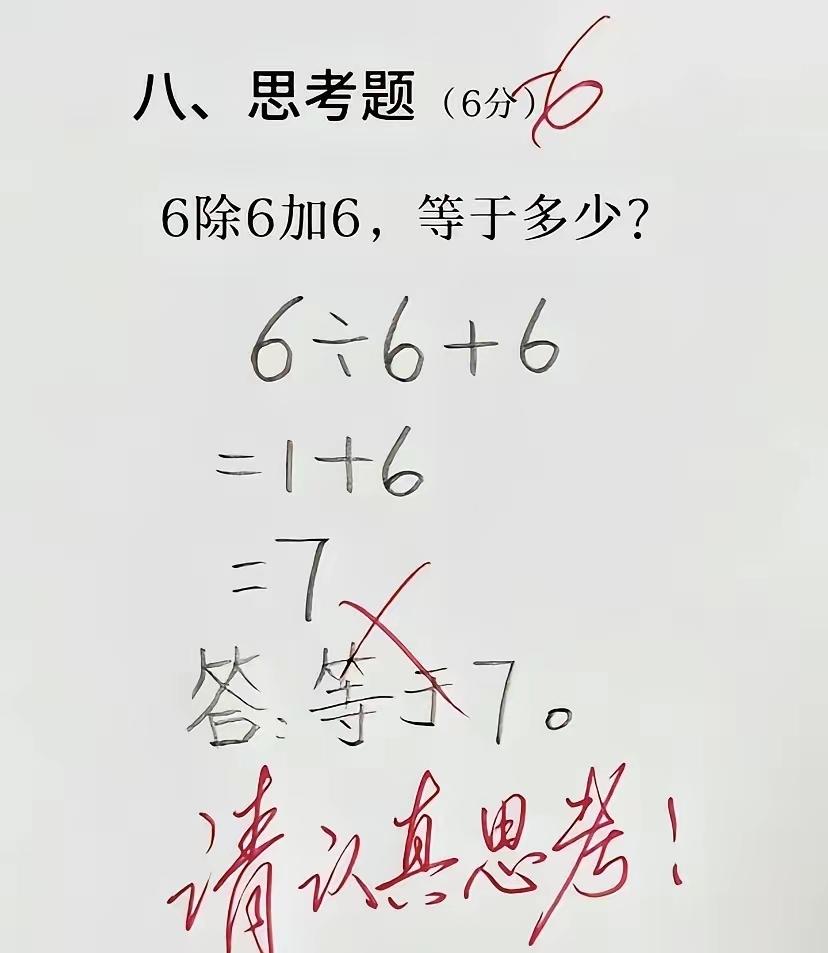 八、思考题（6分） -6
6除6加6，等于多少？
6÷6+6
=1+6
=7
答：等于7。
请认真思考！